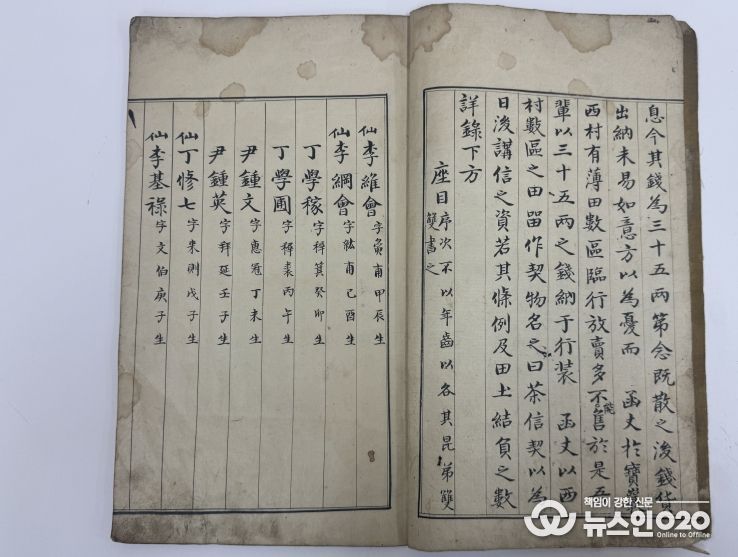 息今其錢為三十五兩第念既散之後錢貨
出納未易如意方以為憂而 函丈於寶巖
西村有薄田數區臨行放賣多不能售於是吾
輩以三十五兩之錢納于行裝 函丈以西
村數區之田留作契物名之曰茶信契以為
日後講信之資若其條例及田土結負之數
詳錄下方
座目 序次不以年齒以各其昆弟雙
雙書之
仙李維會 字負甫甲辰生
仙李綱會 字紘甫己酉生
丁學稼 字穉箕癸卯生
丁學圃 字穉裘丙午生
尹鍾文 字惠冠丁未生
尹鍾英 字拜延壬子生
仙丁修七 字來則戊子生
仙李基祿 字文伯庚子生
책임이 강한 신문
뉴스인020
Online to Offline